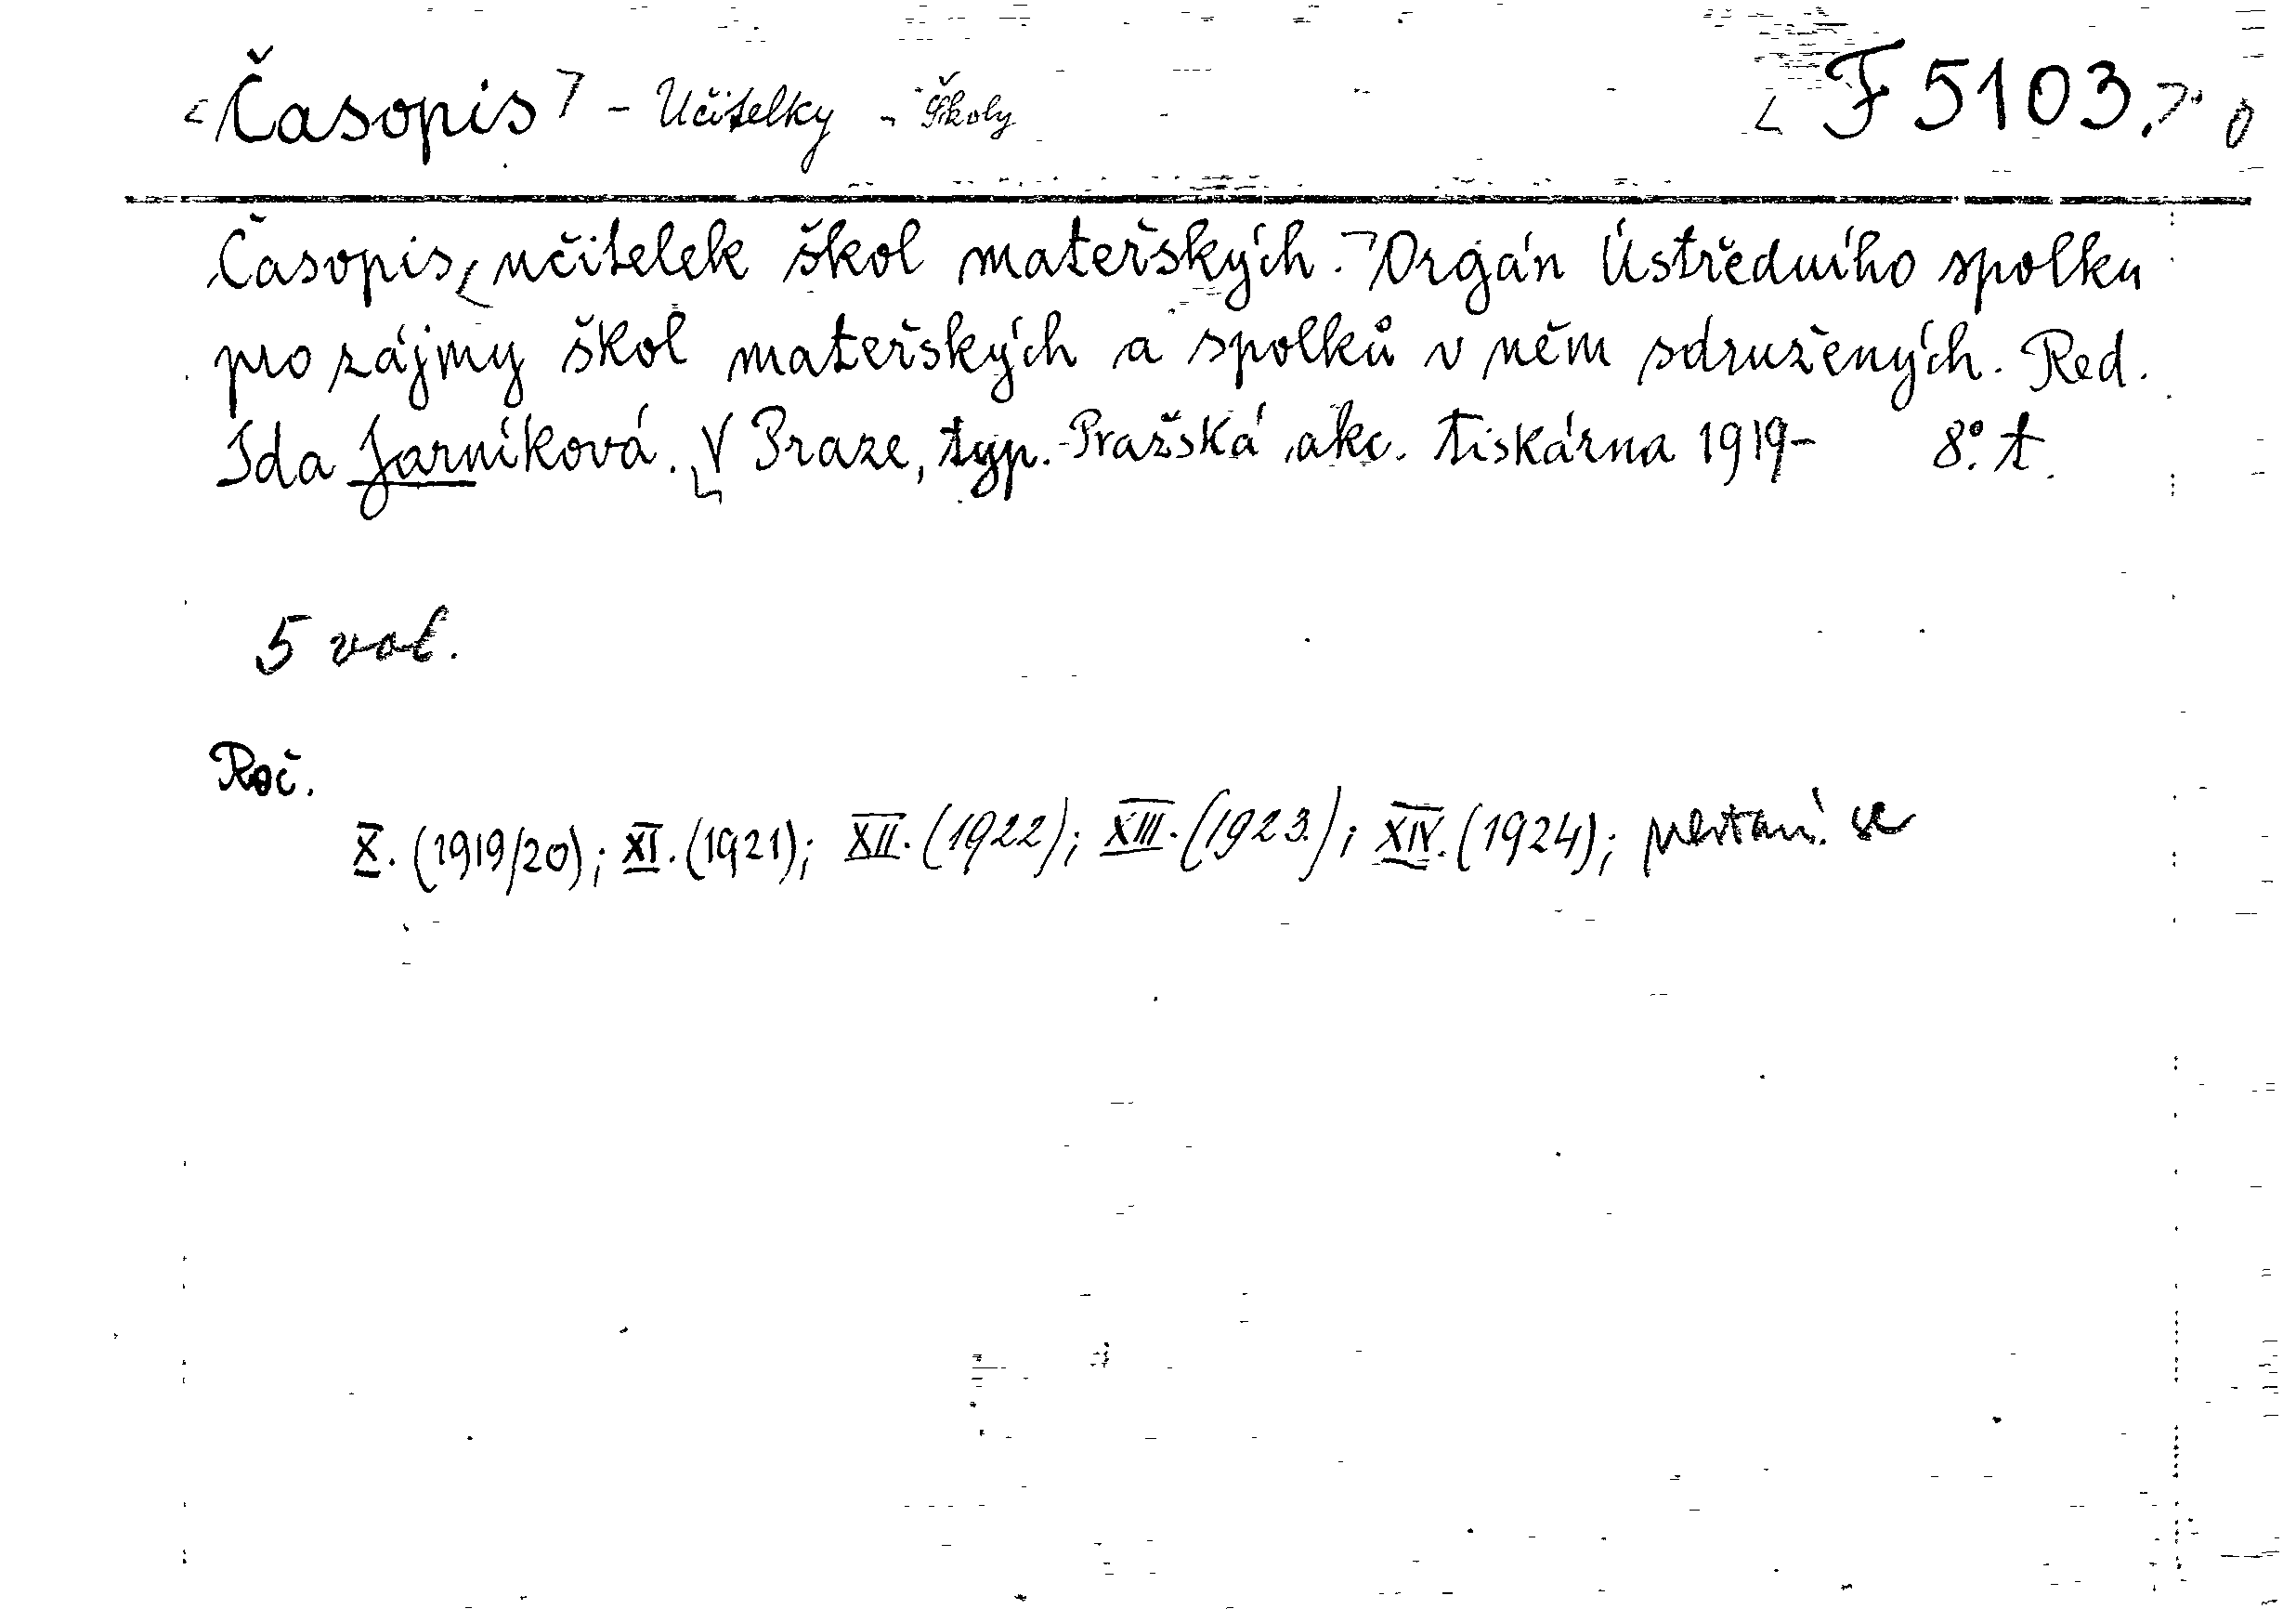 Časopis - Učitelky - Školy F 5103.
Časopis učitelek škol mateřských. Orgán Ústředního spolku
pro zájmy škol mateřských a spolků v něm sdružených. Red.
Ida Jarníková. V Praze, typ. Pražská akc. tiskárna 1919- 8°. t.
5 vol.
Roč.
X. (1919/20); XI. (1921); XII. (1922); XIII. (1923.); XIV. (1924);